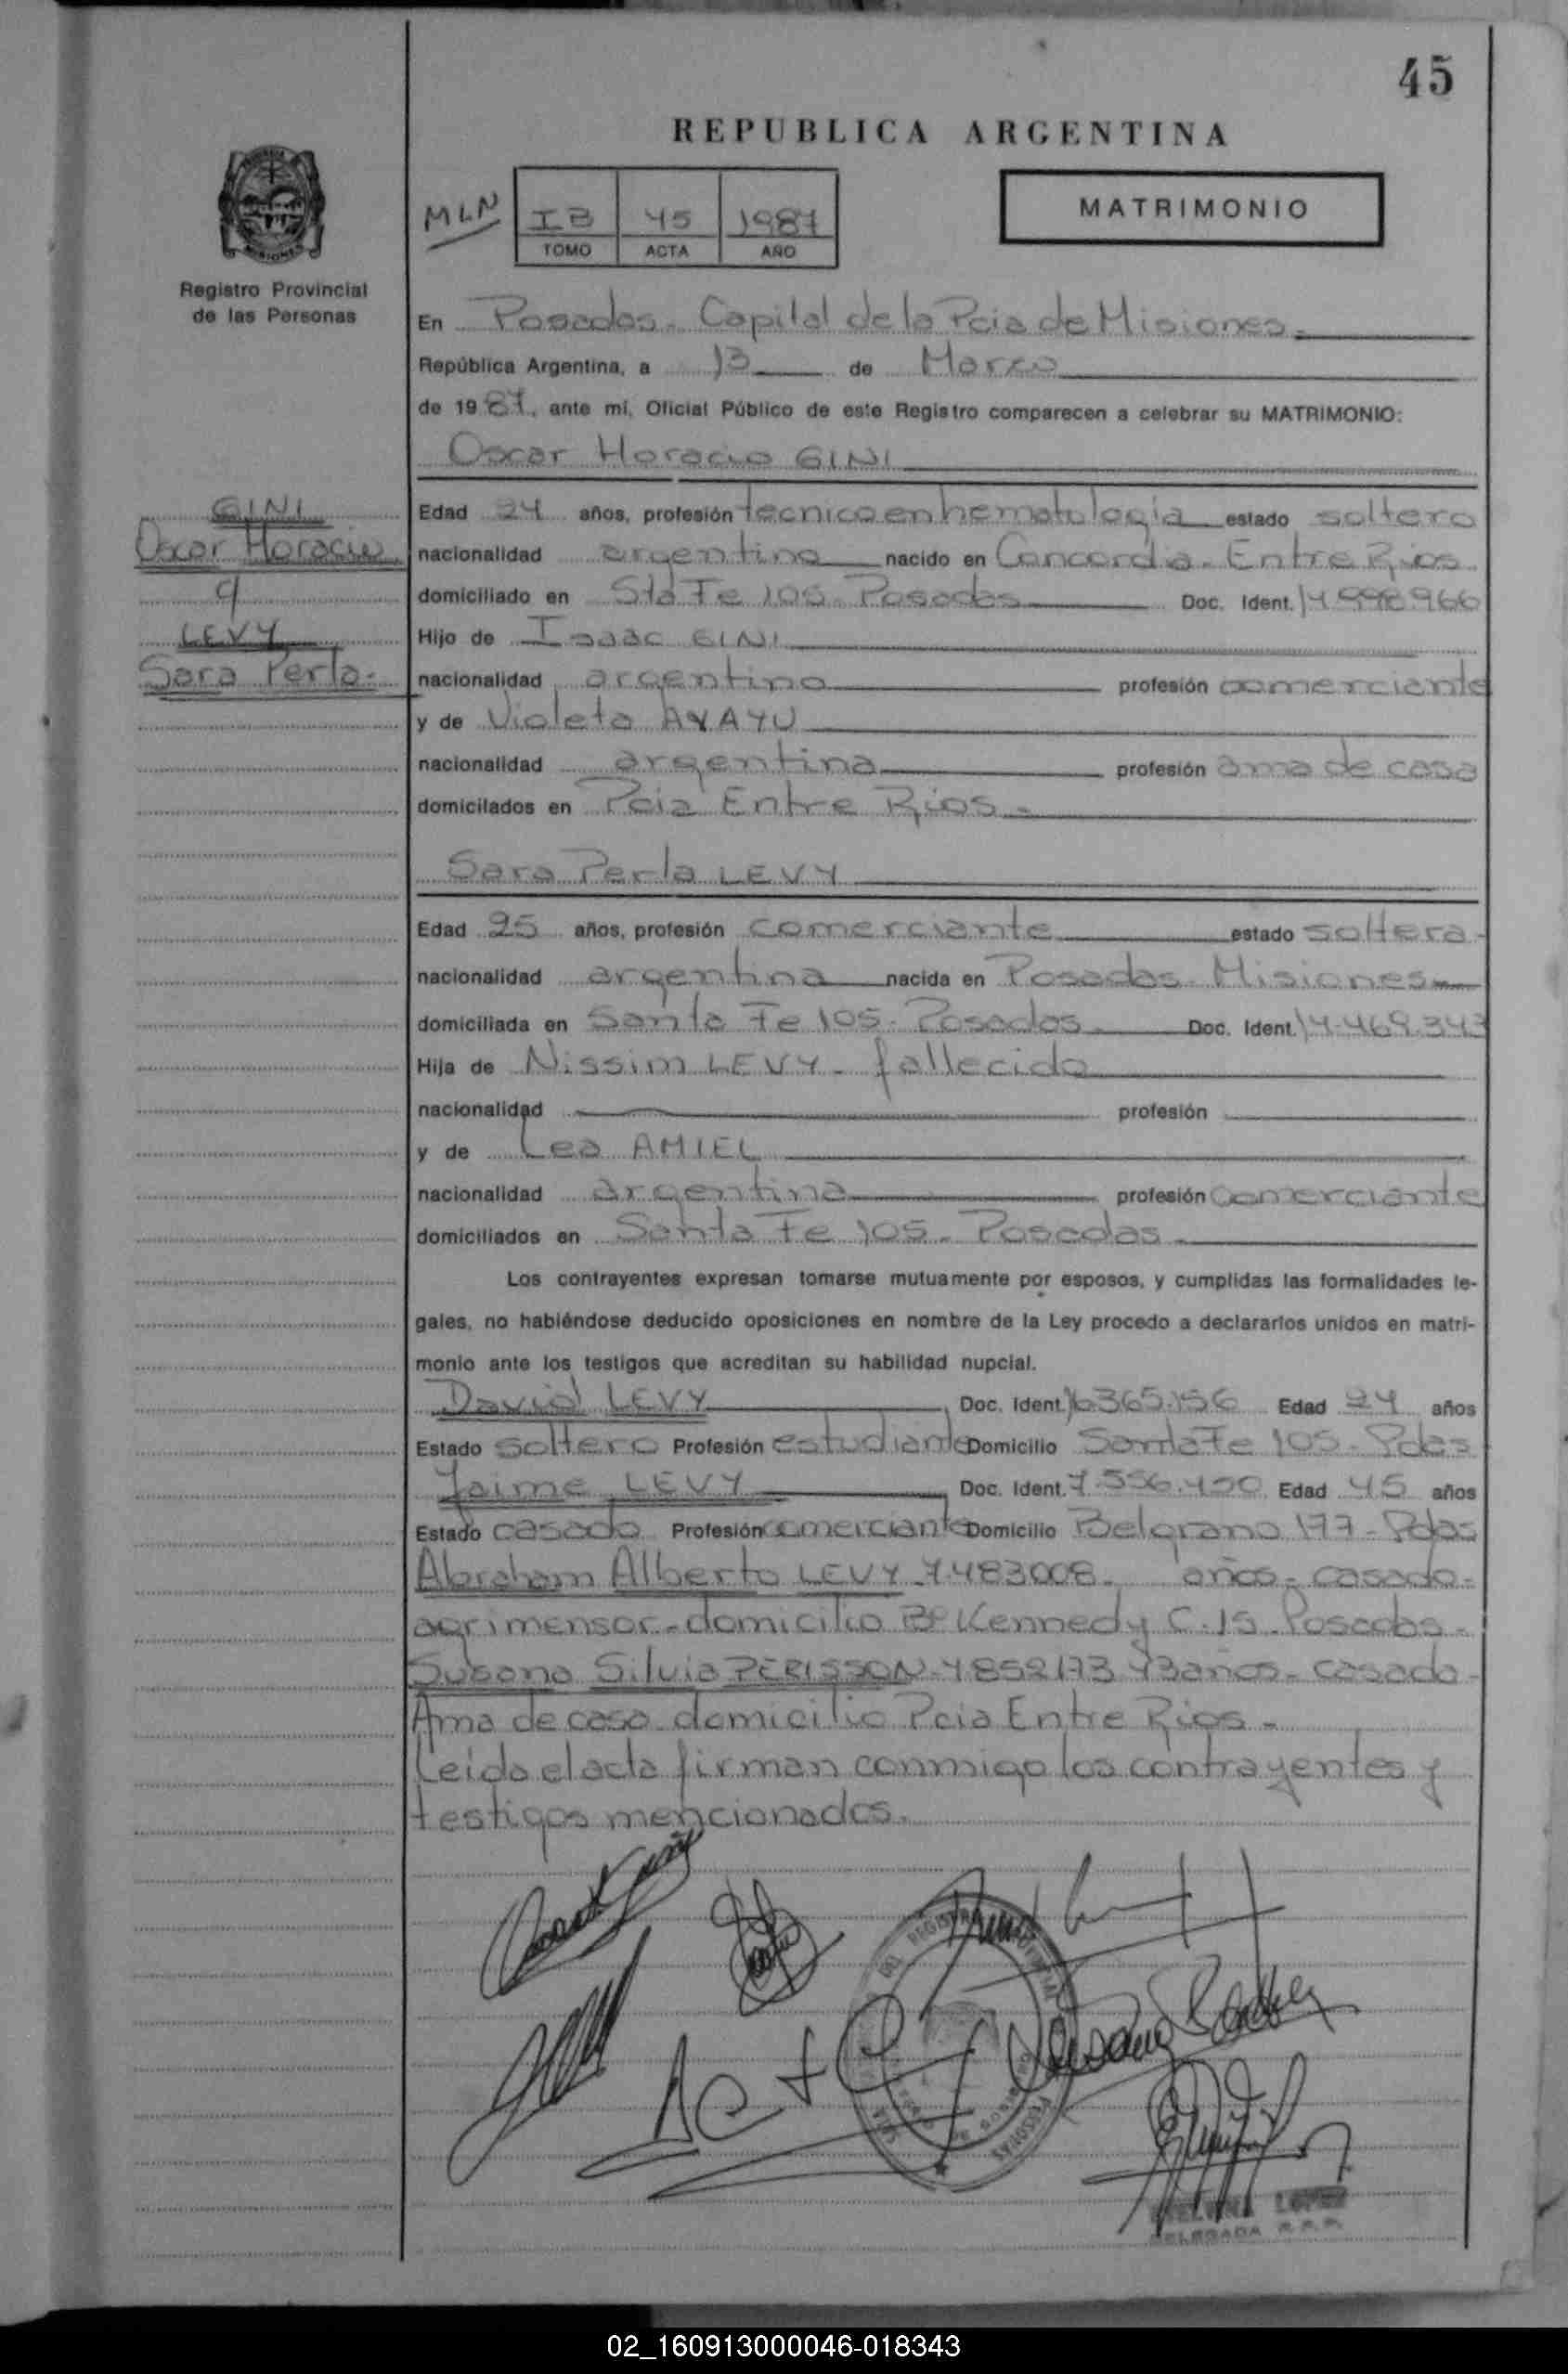 45
REPUBLICA ARGENTINA
MLN
IB 45 1987
TOMO ACTA AÑO
MATRIMONIO
Registro Provincial
de las Personas
En Posadas - Capital de la Pcia de Misiones.
República Argentina, a 13 de Marzo
de 1987, ante mi, Oficial Público de este Registro comparecen a celebrar su MATRIMONIO:
Oscar Horacio GINI
GINI
Oscar Horacio
LEVY
Sara Perla.
Edad 24 años, profesión tecnico en hematologia estado soltero
nacionalidad argentina nacido en Concordia - Entre Rios
domiciliado en Sta Fe 105 - Posadas Doc. Ident. 14.998.966
Hijo de Isaac GINI
nacionalidad argentino profesión comerciante
y de Violeta AYAYU
nacionalidad argentina profesión ama de casa
domicilados en Pcia Entre Rios -
Sara Perla LEVY
Edad 25 años, profesión comerciante estado soltera -
nacionalidad argentina nacida en Posadas - Misiones
domiciliada en Santa Fe 105 - Posadas. Doc. Ident. 14.469.343
Hija de Nissim LEVY - fallecido
nacionalidad profesión
y de Lea AMIEL
nacionalidad argentina profesión comerciante
domiciliados en Santa Fe 105 - Posadas -
Los contrayentes expresan tomarse mutuamente por esposos, y cumplidas las formalidades le-
gales, no habiéndose deducido oposiciones en nombre de la Ley procedo a declararlos unidos en matri-
monio ante los testigos que acreditan su habilidad nupcial.
David LEVY Doc. Ident. 16.365.156 Edad 24 años
Estado soltero Profesión estudiante Domicilio Santa Fe 105 - Pdas
Jaime LEVY Doc. Ident. 7.556.450 Edad 45 años
Estado casado Profesión comerciante Domicilio Belgrano 177 - Pdas
Abraham Alberto LEVY - 7.483008 - años - casado -
agrimensor - domicilio Bº Kennedy C. 15 - Posadas -
Susana Silvia PERISSON - 4852173 43 años - casada -
Ama de casa domicilio Pcia Entre Rios -
Leida el acta firman conmigo los contrayentes y
testigos mencionados.
LOPEZ
DELEGADA R. P. P.
02_160913000046-018343